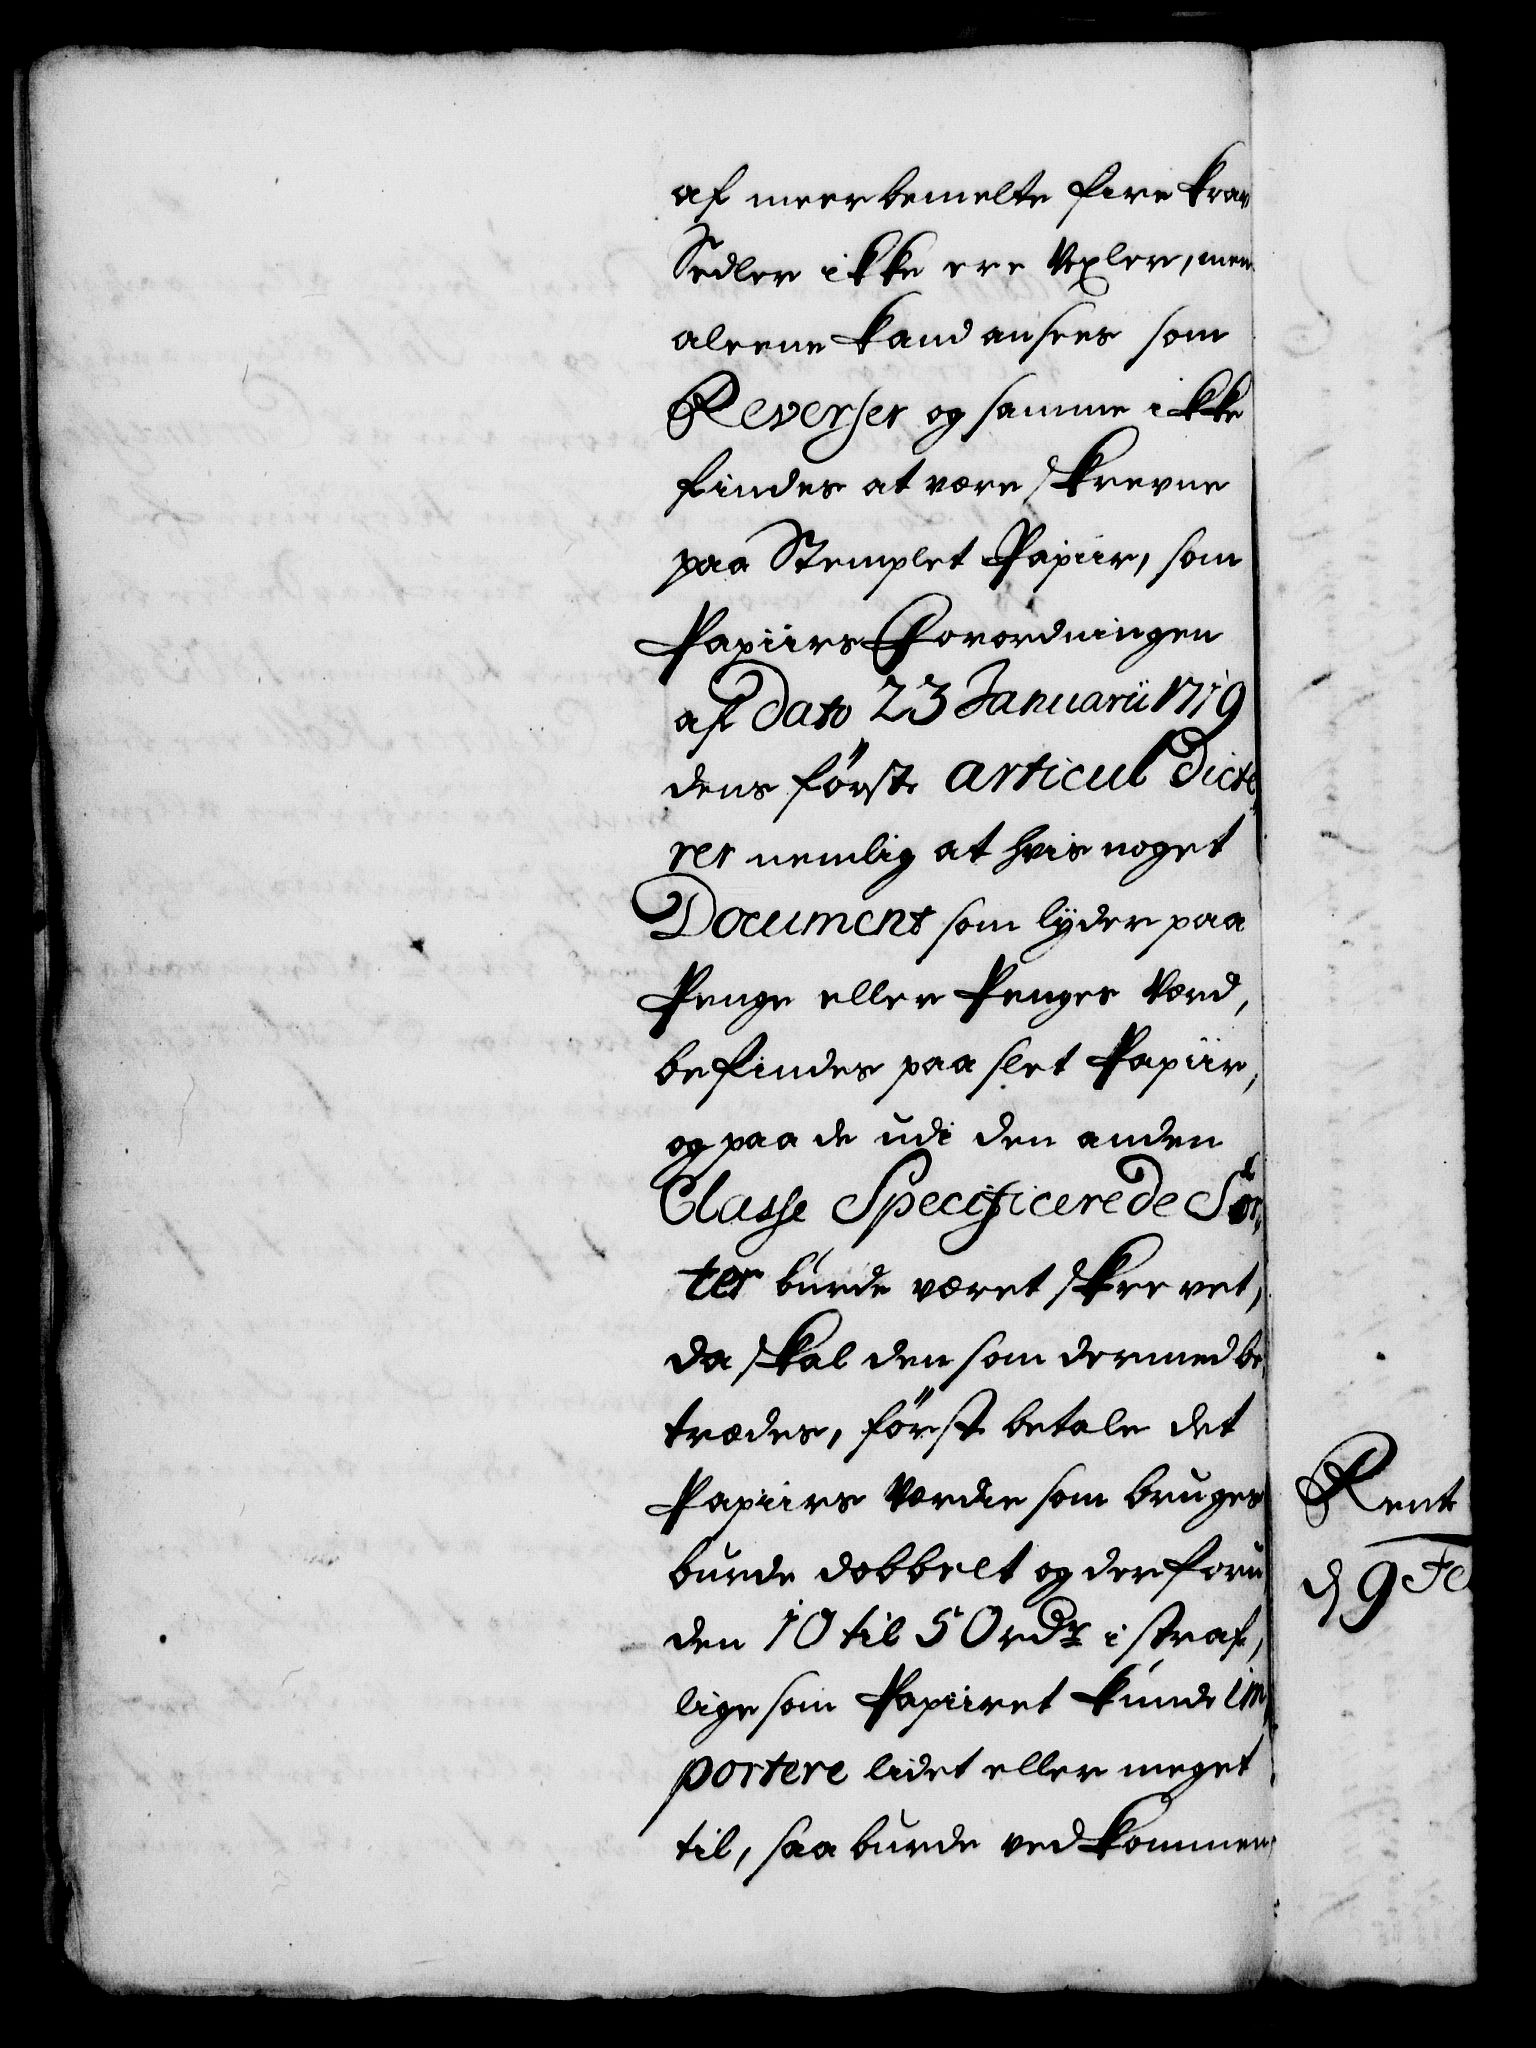 af meerbemelte fire krav
Sedler ikke ere Vexler, men
aleene kand ansees som
Reverser og samme ikke
findes at være skrevne
paa Stemplet Papiir, som
Papiirs Forordningen
af Dato 23 Januarii 1719
dens først articul Dicte,
rer nemlig at hvis noget
Document som lÿder paa
Penge eller Penges Værd,
befindes paa slet Papiir,
og paa de udi den anden
Classe Specificerede Sor,
ter burde været skrevet,
da skal den som dermed be,
trædes, først betale det
Papiirs Værdie som bruges
burde dobbelt og der foru
den 10 til 50 rdr i straf,
lige som Papiiret kunde im,
portere lidet eller meget
til, saa burde vedkommen,
Rent
d 9 Fe